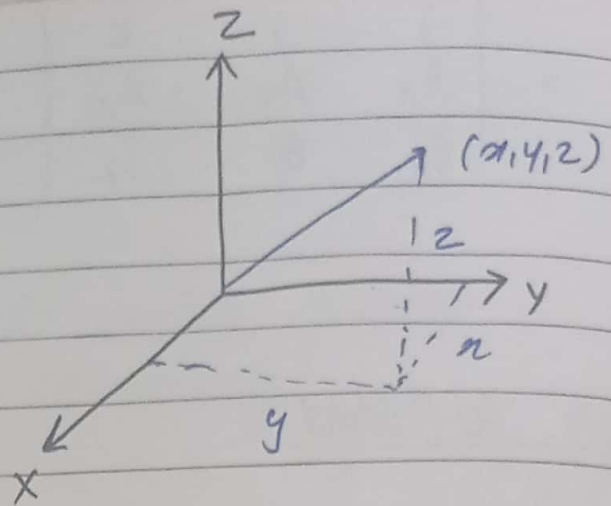 Z
(x,y,z)
z
Y
x
y
X